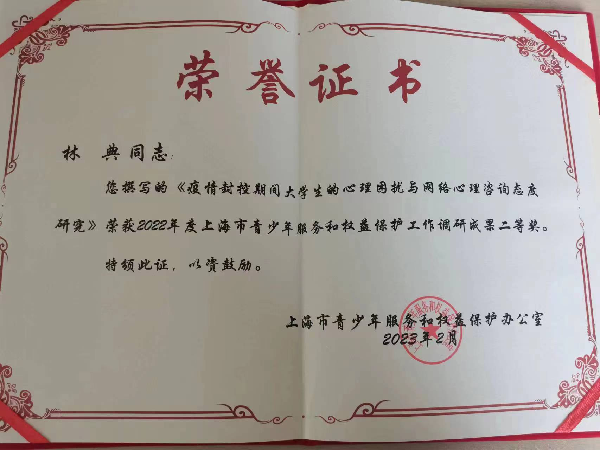 荣誉证书
林 典同志:
您撰写的《疫情封控期间大学生的心理困扰与网络心理咨询态度
研究》荣获2022年度上海市青少年服务和权益保护工作调研成果二等奖。
特颁此证，以资鼓励。
上海市青少年服务和权益保护办公室
2023年2月